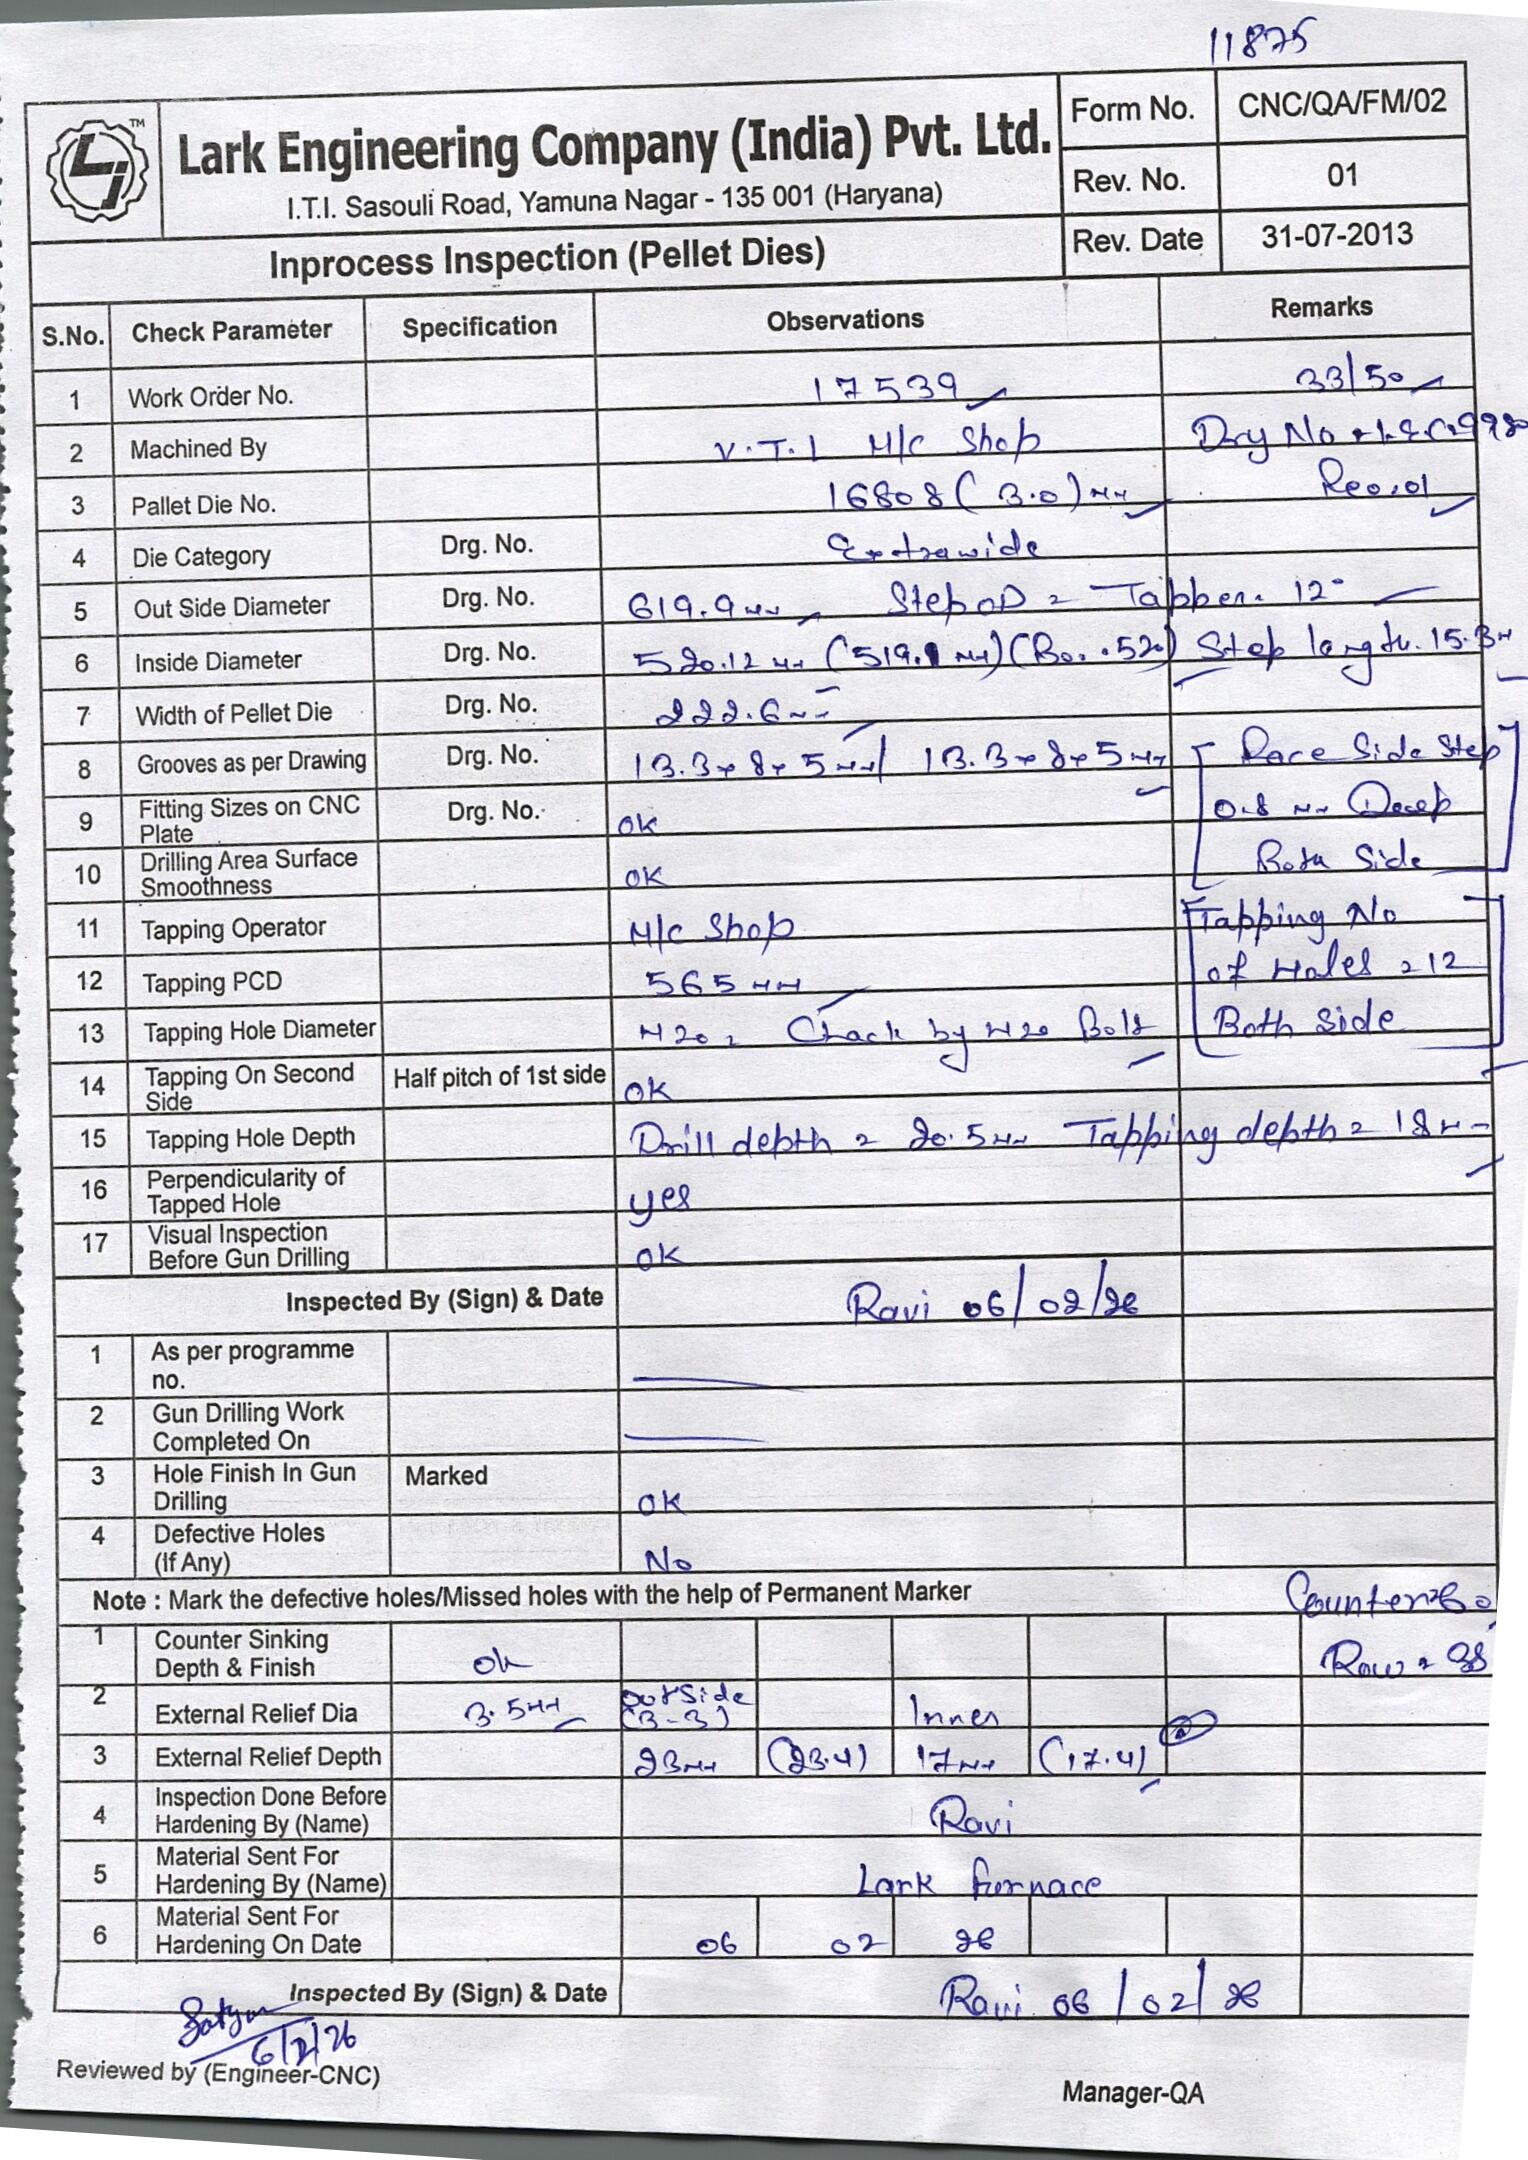 11875
Lark Engineering Company (India) Pvt. Ltd.
I.T.I. Sasouli Road, Yamuna Nagar - 135 001 (Haryana)
Form No. CNC/QA/FM/02
Rev. No. 01
Inprocess Inspection (Pellet Dies) Rev. Date 31-07-2013
S.No. Check Parameter Specification Observations Remarks
1 Work Order No. 17539 33/50
2 Machined By V.T.I M/c Shop Drg No
3 Pallet Die No. 16808 (3.0) mm
4 Die Category Drg. No. Extrawide
5 Out Side Diameter Drg. No. 619.9 mm Step OD = Tapper. 12°
6 Inside Diameter Drg. No. 520.12 mm (519.1 mm) Step length. 15.3m
7 Width of Pellet Die Drg. No. 222.6 mm
8 Grooves as per Drawing Drg. No. 13.3x8x5 mm/ 13.3x8x5 mm Race Side Step
9 Fitting Sizes on CNC Plate Drg. No. OK 0.8 mm Deep
10 Drilling Area Surface Smoothness OK Both Side
11 Tapping Operator M/c Shop Tapping No
12 Tapping PCD 565 mm of Holes = 12
13 Tapping Hole Diameter M20 = Chack by M20 Bolt Both Side
14 Tapping On Second Side Half pitch of 1st side OK
15 Tapping Hole Depth Drill depth = 20.5 mm Tapping depth = 18 m
16 Perpendicularity of Tapped Hole yes
17 Visual Inspection Before Gun Drilling OK
Inspected By (Sign) & Date Ravi 06/02/26
1 As per programme no.
2 Gun Drilling Work Completed On
3 Hole Finish In Gun Drilling Marked OK
4 Defective Holes (If Any) No
Note : Mark the defective holes/Missed holes with the help of Permanent Marker
1 Counter Sinking Depth & Finish ok
2 External Relief Dia 3.5 mm outside (3-3) Inner
3 External Relief Depth 23mm (23.4) 17mm (17.4)
4 Inspection Done Before Hardening By (Name) Ravi
5 Material Sent For Hardening By (Name) Lark furnace
6 Material Sent For Hardening On Date 06 02 26
Inspected By (Sign) & Date Ravi 06/02/26
6/2/26
Reviewed by (Engineer-CNC)
Manager-QA